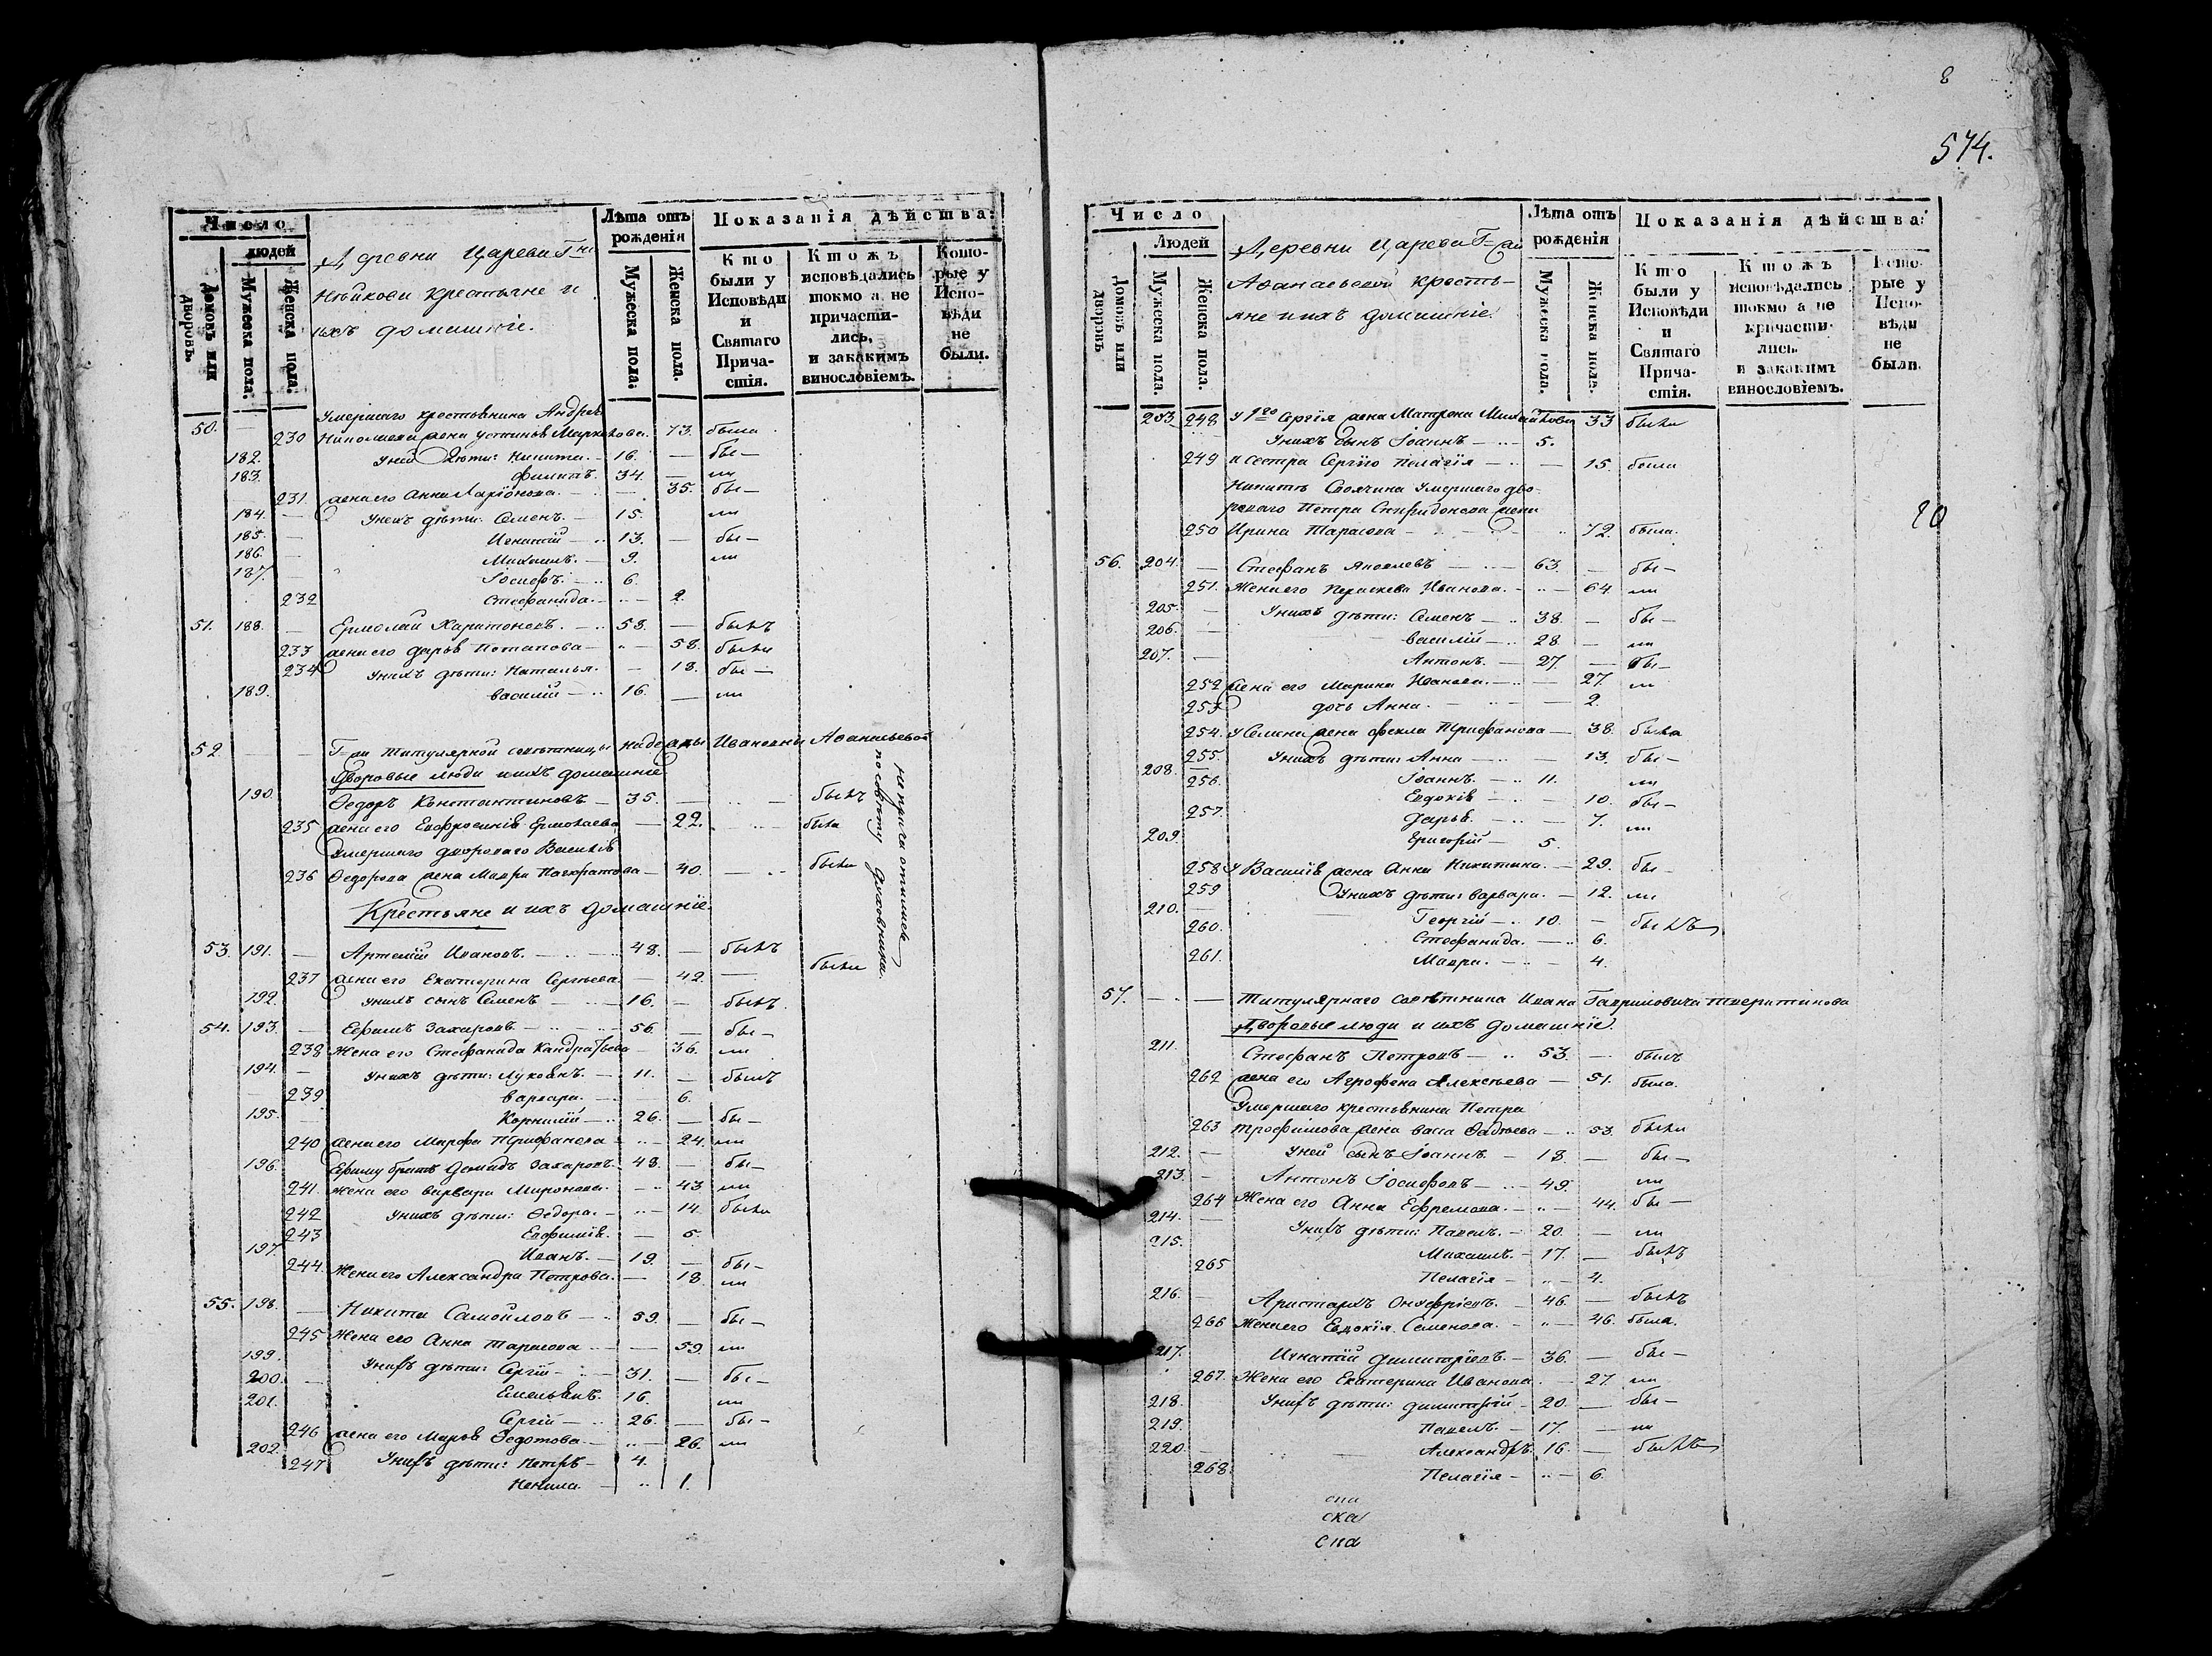 Число
людей
Домовъ или дворовъ.
Мужеска пола.
Женска пола.
Деревни Царева Г=на
крестьяне и
ихъ домашніе.
Лѣта отъ рожденія
Мужеска пола.
Женска пола.
Показанія дѣйства:
Кто были у Исповѣди и Святаго Прича-стія.
Ктожъ исповѣдались токмо а не причасти-лись, и закакимъ винословіемъ.
Кото-рые у Испо-вѣди не были.
50. — Умершаго крестьянина Андрея
230 жена Устинья 73. была
182. Уней дѣти: Никита — 16. — бы—
183. Филиппъ. 34. — ли
231 жена его Анна Ларіонова — 35. бы—
184. — Унихъ дѣти: Семенъ — 15. ли
185. — Игнатій — 13. — бы—
186. — Михаилъ — 9. ли
187. — Іосифъ — 6.
232 Стефанида — 2.
51. 188. — Ермолай Харитоновъ. — 58. — былъ
233 жена его Дарья Потапова — 58. была
234 Унихъ дѣти: Наталья — 18. бы—
189. Василій — 16. — ли
52 — — Г=жи титулярной совѣтницы Надежды Ивановны Аѳанасьевой
Дворовые люди и ихъ домашніе
190. Ѳедоръ Константиновъ — 35. — былъ
235 жена его Евфросинія Ермолаева — 22. была
Умершаго двороваго Василія
236 Ѳедорова жена Мавра — 40. была
не причастились по совѣту духовника.
Крестьяне и ихъ домашніе.
53. 191. — Артемій Ивановъ. — 48. — былъ
237 жена его Екатерина Сергѣева — 42. — была
192. Унихъ сынъ Семенъ — 16. — былъ.
54. 193. — Ефимъ Захаровъ — 56. — бы—
238 Жена его Стефанида Кандратьева — 36. ли
194. — Унихъ дѣти: Лукьянъ. — 11. — былъ
239 Варвара. — 6.
195. — Корнилій — 26. — бы—
240 жена его Марфа Трифанова — 24. ли
196. Ефиму братъ Демидъ Захаровъ. 48. — бы—
241. жена его Варвара Миронова. — 43 ли
242 Унихъ дѣти: Ѳедора. — 14. была
243 Евфимія. — 5.
197. Иванъ. — 19. — бы—
244. Жена его Александра Петрова. — 18. ли
55. 198. — Никита Самойловъ — 59. — бы—
245 Жена его Анна Тарасова — 59. ли
199. Унихъ дѣти: Сергій — 31. — бы—
200. — Емельянъ. 16. ли
201. Сергій — 26. — бы—
246 жена его Марья Ѳедотова — 26. ли
202. Унихъ дѣти: Петръ — 4.
247 Ненила — 1.
8
574.
Число
Людей
Домовъ или дворовъ
Мужеска пола.
Женска пола.
Деревни Царева Г=жи
Аѳанасьевой кресть-
яне и ихъ домашніе.
Лѣта отъ рожденія
Мужеска пола.
Женска пола.
Показанія дѣйства:
Кто были у Исповѣди и Святаго Прича-стія.
Ктожъ исповѣдались токмо а не причасти-лись. и закакимъ винословіемъ.
Кото-рые у Испо-вѣди не были.
203. 248 У 1го Сергія жена Матрона 33 была
Унихъ сынъ Іоаннъ — 5.
249 и сестра Сергіго Пелагія — 15. была
умершаго дво-
роваго Петра Спиридонова жена
250 Ирина Тарасова — 72. была.
20
56. 204. — Стефанъ Яковлевъ — 63. — бы—
251. Жена его Параскева Иванова. — 64. ли
205. — Унихъ дѣти: Семенъ — 38. — бы—
206. — Василій — 28 — ли
207. — Антонъ. — 27. — бы—
252 Жена его Марина Иванова. — 27. ли
253 дочь Анна. — 2.
254. У Семена жена Фекла Трифанова — 38. была
255. Унихъ дѣти: Анна — 13. бы—
208. — Іоаннъ. — 11. ли
256. Евдокія — 10. бы—
257. Дарья. — 7. ли
209. Григорій — 5.
258 У Василія жена Анна Никитина. — 29. бы—
259 Унихъ дѣти: Варвара. — 12. ли
210. — Георгій — 10. — былъ
260. Стефанида. — 6.
261. Мавра. — 4.
57. — — Титулярнаго совѣтника Ивана Гавриловича
Дворовые люди и ихъ домашніе.
211. Стефанъ Петровъ — 53. — былъ
262 жена его Агрофена Алексѣева — 51. была.
Умершаго крестьянина Петра
263 Трофимова жена Васса Фадѣева — 53. была
212. — Уней сынъ Іоаннъ. — 18. — бы—
213. — Антонъ Іосифовъ — 49. ли
264 Жена его Анна Ефремова. — 44. бы—
214. — Унихъ дѣти: Павелъ. — 20. — ли
215. Михаилъ. — 17. — былъ
265 Пелагія — 4.
216. — Аристархъ Онуфріевъ. — 46. — былъ
266 Жена его Евдокія Семенова. — 46. была.
217. Игнатій Димитріевъ. — 36. — бы—
267. Жена его Екатерина Иванова. — 27. ли
218. Унихъ дѣти: Димитрій — 20. — бы—
219. Павелъ. — 17. — ли
220. — Александръ. 16. — былъ
268. Пелагія — 6.